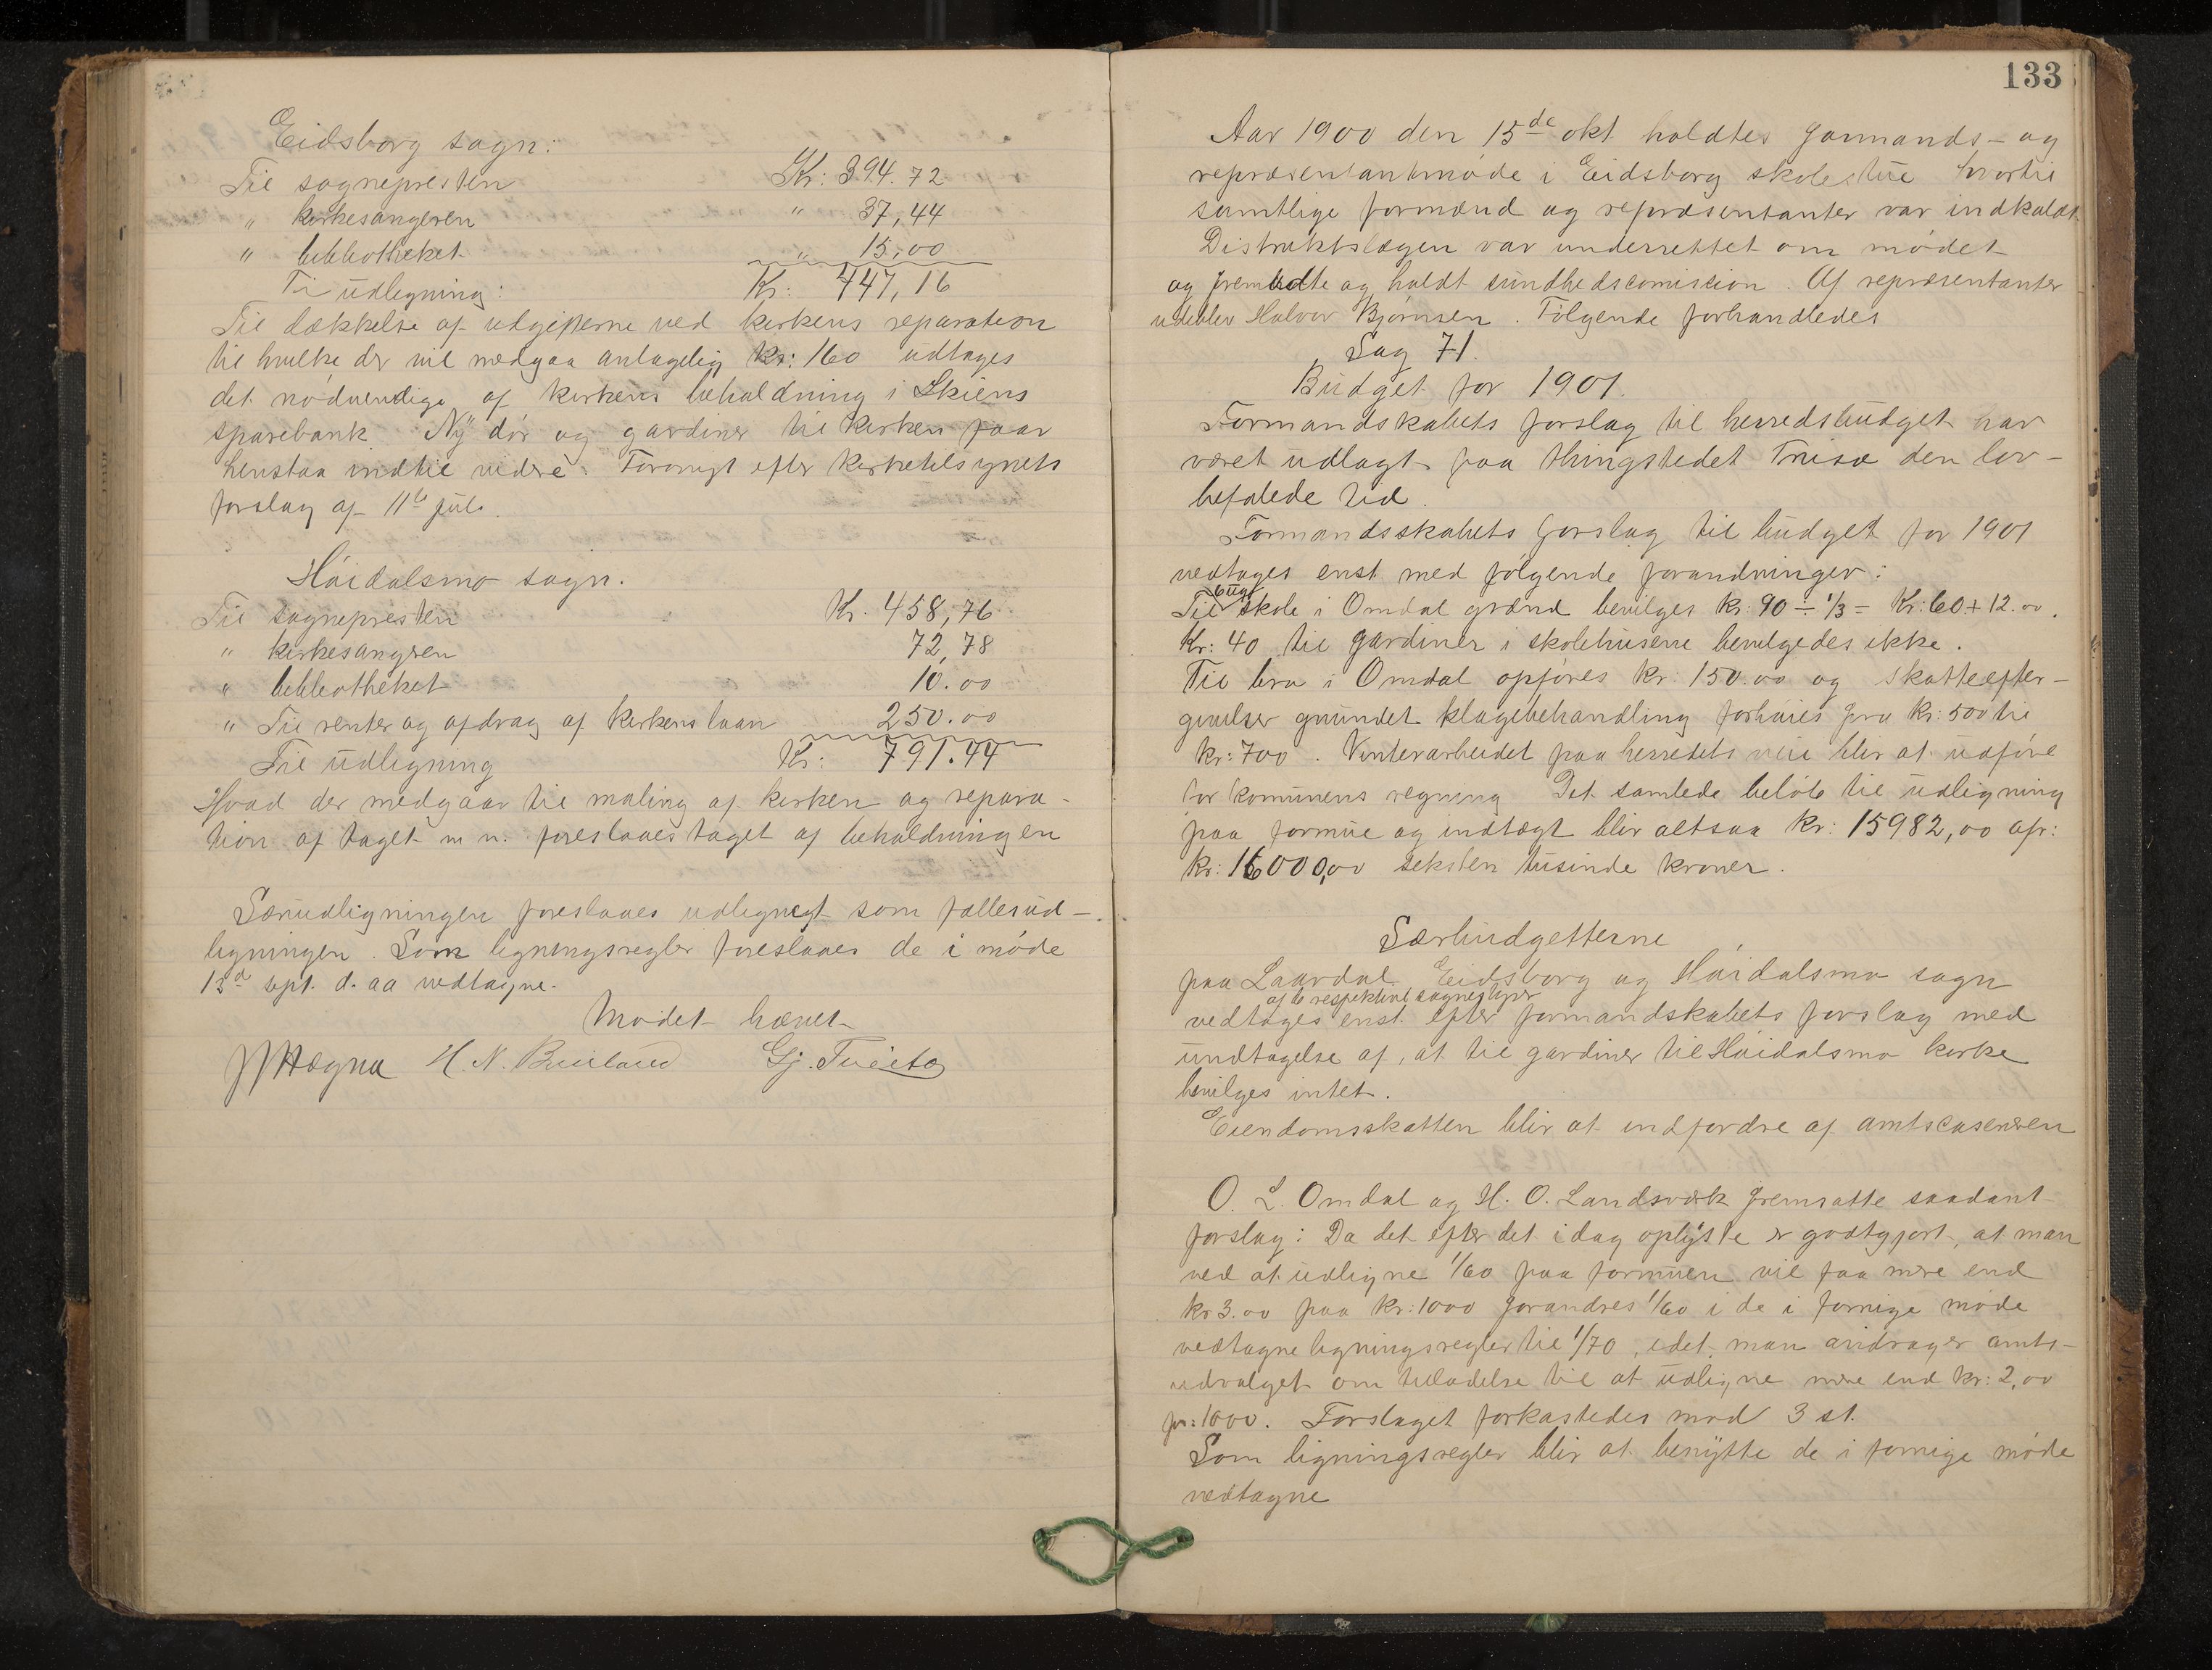 Eidsborg sogn:
Til sognepresten Kr: 394.72
" kirkesangeren " 37,44
" bibliotheket " 15,00
Til udligning: Kr: 447,16
Til dækkelse af udgifterne ved kirkens reparation
til hvilke der vil medgaa antagelig kr: 160 udtages
det nödvendige af kirkens beholdning i Skiens
sparebank. Ny dör og gardiner til kirken faar
henstaa indtil videre. Forövrigt efter kirketilsynets
forslag af 11te juli.
Höidalsmo sogn.
Til sognepresten Kr. 458,76
" kirkesangeren 72,78
" bibliotheket 10.00
" Til renter og afdrag af kirkens laan 250.00
Til udligning Kr: 791.44
Hvad der medgaar til maling af kirken og repara-
tion af taget m m. foreslaaes taget af beholdningen
Særudligningen foreslaaes udlignegt som fællesud-
ligningen. Som ligningsregler foreslaaes de i möde
13de sept. d. aa vedtagne.
Mödet hævet
H. N. Bunland Gj. Tveito
133
Aar 1900 den 15de okt holdtes formands- og
repræsentantmöde i Eidsborg skolestue hvortil
samtlige formænd og repræsentanter var indkaldt
Distriktslægen var underrettet om mödet
og fremmödte og holdt sundhedscomission. Af repræsentanter
udeblev Halvor Björnsen. Fölgende forhandledes
Sag 71.
Budget for 1901.
Formandskabets forslag til herredsbudget har
været udlagt paa thingstedet Trisæ den lov-
befalede tid.
Formandsskabets forslag til budget for 1901
vedtages enst med fölgende forandringer:
byg
Til skole i Omdal grænd bevilges kr: 90 ÷ 1/3 = Kr: 60 + 12.00.
Kr: 40 til gardiner i skolehusene bevilgedes ikke.
Til bro i Omdal opföres kr: 150.00 og skatteefter-
givelser grundet klagebehandling forhöies fra kr: 500 til
kr: 700. Vinterarbeidet paa herredets veie blir at udföre
for kommunens regning Det samlede belöb til udligning
paa formue og indtægt blir altsaa kr: 15982,00 afr:
kr: 16000,00 seksten tusinde kroner.
Særbudgetterne
paa Laardal Eidsborg og Höidalsmo sogn
af de respektive sognestyrer
vedtages enst efter formandskabets forslag med
undtagelse af, at til gardiner til Höidalsmo kirke
bevilges intet.
Eiendomsskatten blir at indfordre af amtscasereren
O. L. Omdal og H. O. Landsværk fremsatte saadant
forslag: Da det efter det idag oplyste er godtgjort, at man
ved at udligne 1/60 paa formuen vil faa mere end
kr 3.00 paa kr: 1000 forandres 1/60 i de i forrige möde
vedtagne ligningsregler til 1/70, idet man andrager amts-
udvalget om tilladelse til at udligne mere end kr: 2,00
pr: 1000. Forslaget forkastedes mod 3 st.
Som ligningsregler blir at benytte de i forrige möde
vedtagne